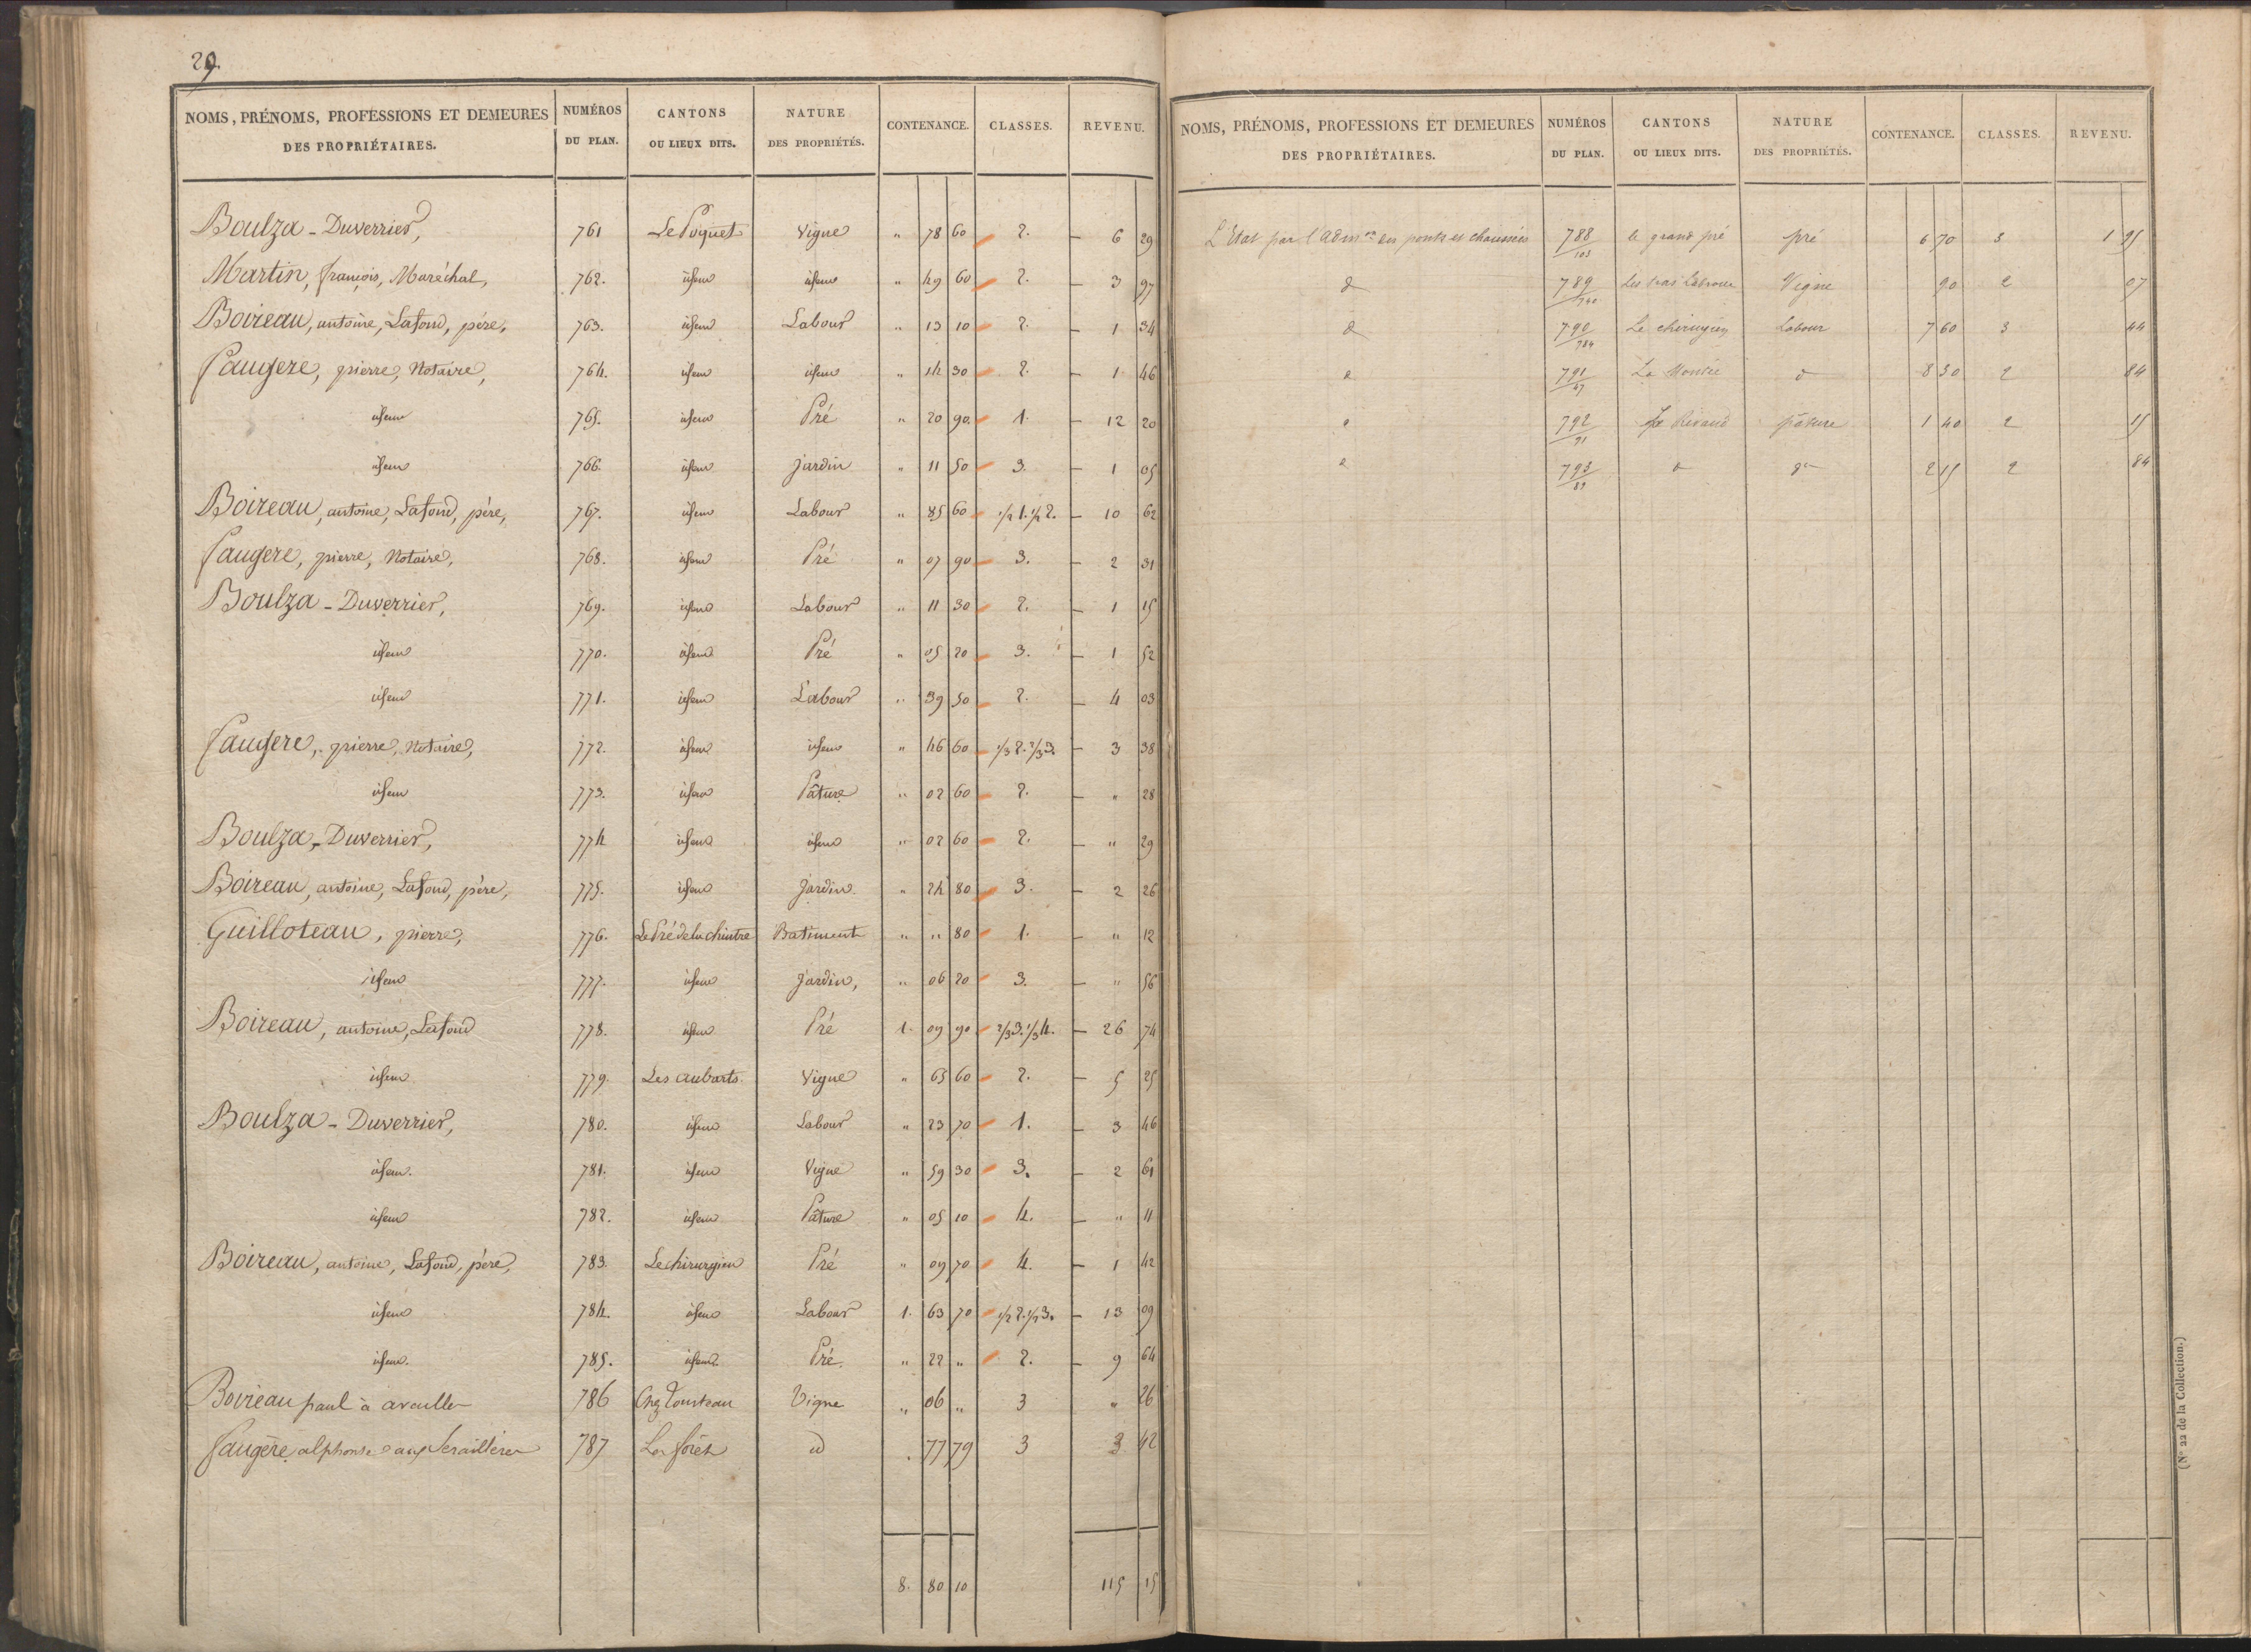 29.
NOMS, PRÉNOMS, PROFESSIONS ET DEMEURES DES PROPRIÉTAIRES. NUMÉROS DU PLAN. CANTONS OU LIEUX DITS. NATURE DES PROPRIÉTÉS. CONTENANCE. CLASSES. REVENU.
Boulza-Duverrier, 761 Le Poiquet Vigne " 78 60 2. - 6 29
Martin, françois, Maréchal, 762. idem idem " 49 60 2. - 3 97
Boireau, antoine, Lafond, père, 763. idem Labour " 13 10 2. - 1 34
Faugere, pierre, Notaire, 764. idem idem " 14 30 2. - 1 46
idem 765. idem Pré " 20 90. 1. - 12 20
idem 766. idem Jardin " 11 50 3. - 1 05
Boireau, antoine, Lafond, père, 767. idem Labour " 85 60 1/2 1. 1/2 2. - 10 62
Faugere, pierre, Notaire, 768. idem Pré " 07 90 3. - 2 31
Boulza-Duverrier, 769. idem Labour " 11 30 2. - 1 15
idem 770. idem Pré " 05 20 3. - 1 52
idem 771. idem Labour " 39 50 2. - 4 03
Faugere, pierre, Notaire, 772. idem idem " 46 60 1/3 2. 2/3 3. - 3 38
idem 773. idem Pâture " 02 60 2. - " 28
Boulza-Duverrier, 774 idem idem " 02 60 2. - " 29
Boireau, antoine, Lafond, père, 775. idem Jardin. " 24 80 3. - 2 26
Guilloteau, pierre, 776. Le Pré de la chintre Batiment " " 80 1. - " 12
idem 777. idem Jardin, " 06 20 3. - " 56
Boireau, antoine, Lafond 778. idem Pré 1. 09 90 2/3 3. 1/3 4. - 26 74
idem 779. Les aubarts. Vigne " 65 60 2. - 5 25
Boulza-Duverrier, 780. idem Labour " 23 70 1. - 3 46
idem. 781. idem Vigne " 59 30 3. - 2 61
idem 782. idem Pâture " 05 10 4. - " 11
Boireau, antoine, Lafond, père, 783. Le chirurgien Pré " 09 70 4. - 1 42
idem 784. idem Labour 1. 63 70 1/2 2. 1/2 3. - 13 09
idem. 785. idem. Pré. " 22 " 2. - 9 64
Boireau paul à 786 Chez Vigne " 06 " 3 " 26
Faugère alphonse aux 787 La forêt id . 77 79 3 3 42
8. 80 10 115 15
NOMS, PRÉNOMS, PROFESSIONS ET DEMEURES DES PROPRIÉTAIRES. NUMÉROS DU PLAN. CANTONS OU LIEUX DITS. NATURE DES PROPRIÉTÉS. CONTENANCE. CLASSES. REVENU.
L'Etat par l'Admon des ponts et chaussées 788/103 le grand pré pré 6 70 3 1 95
d 789/740 Les Vigne 90 2 07
d 790/784 Le chirurgien Labour 7 60 3 44
d 791/67 La d 8 30 2 84
d 792/91 Le Rivaud pâture 1 40 2 15
d 793/89 d d 2 15 2 84
(N° 22 de la Collection.)